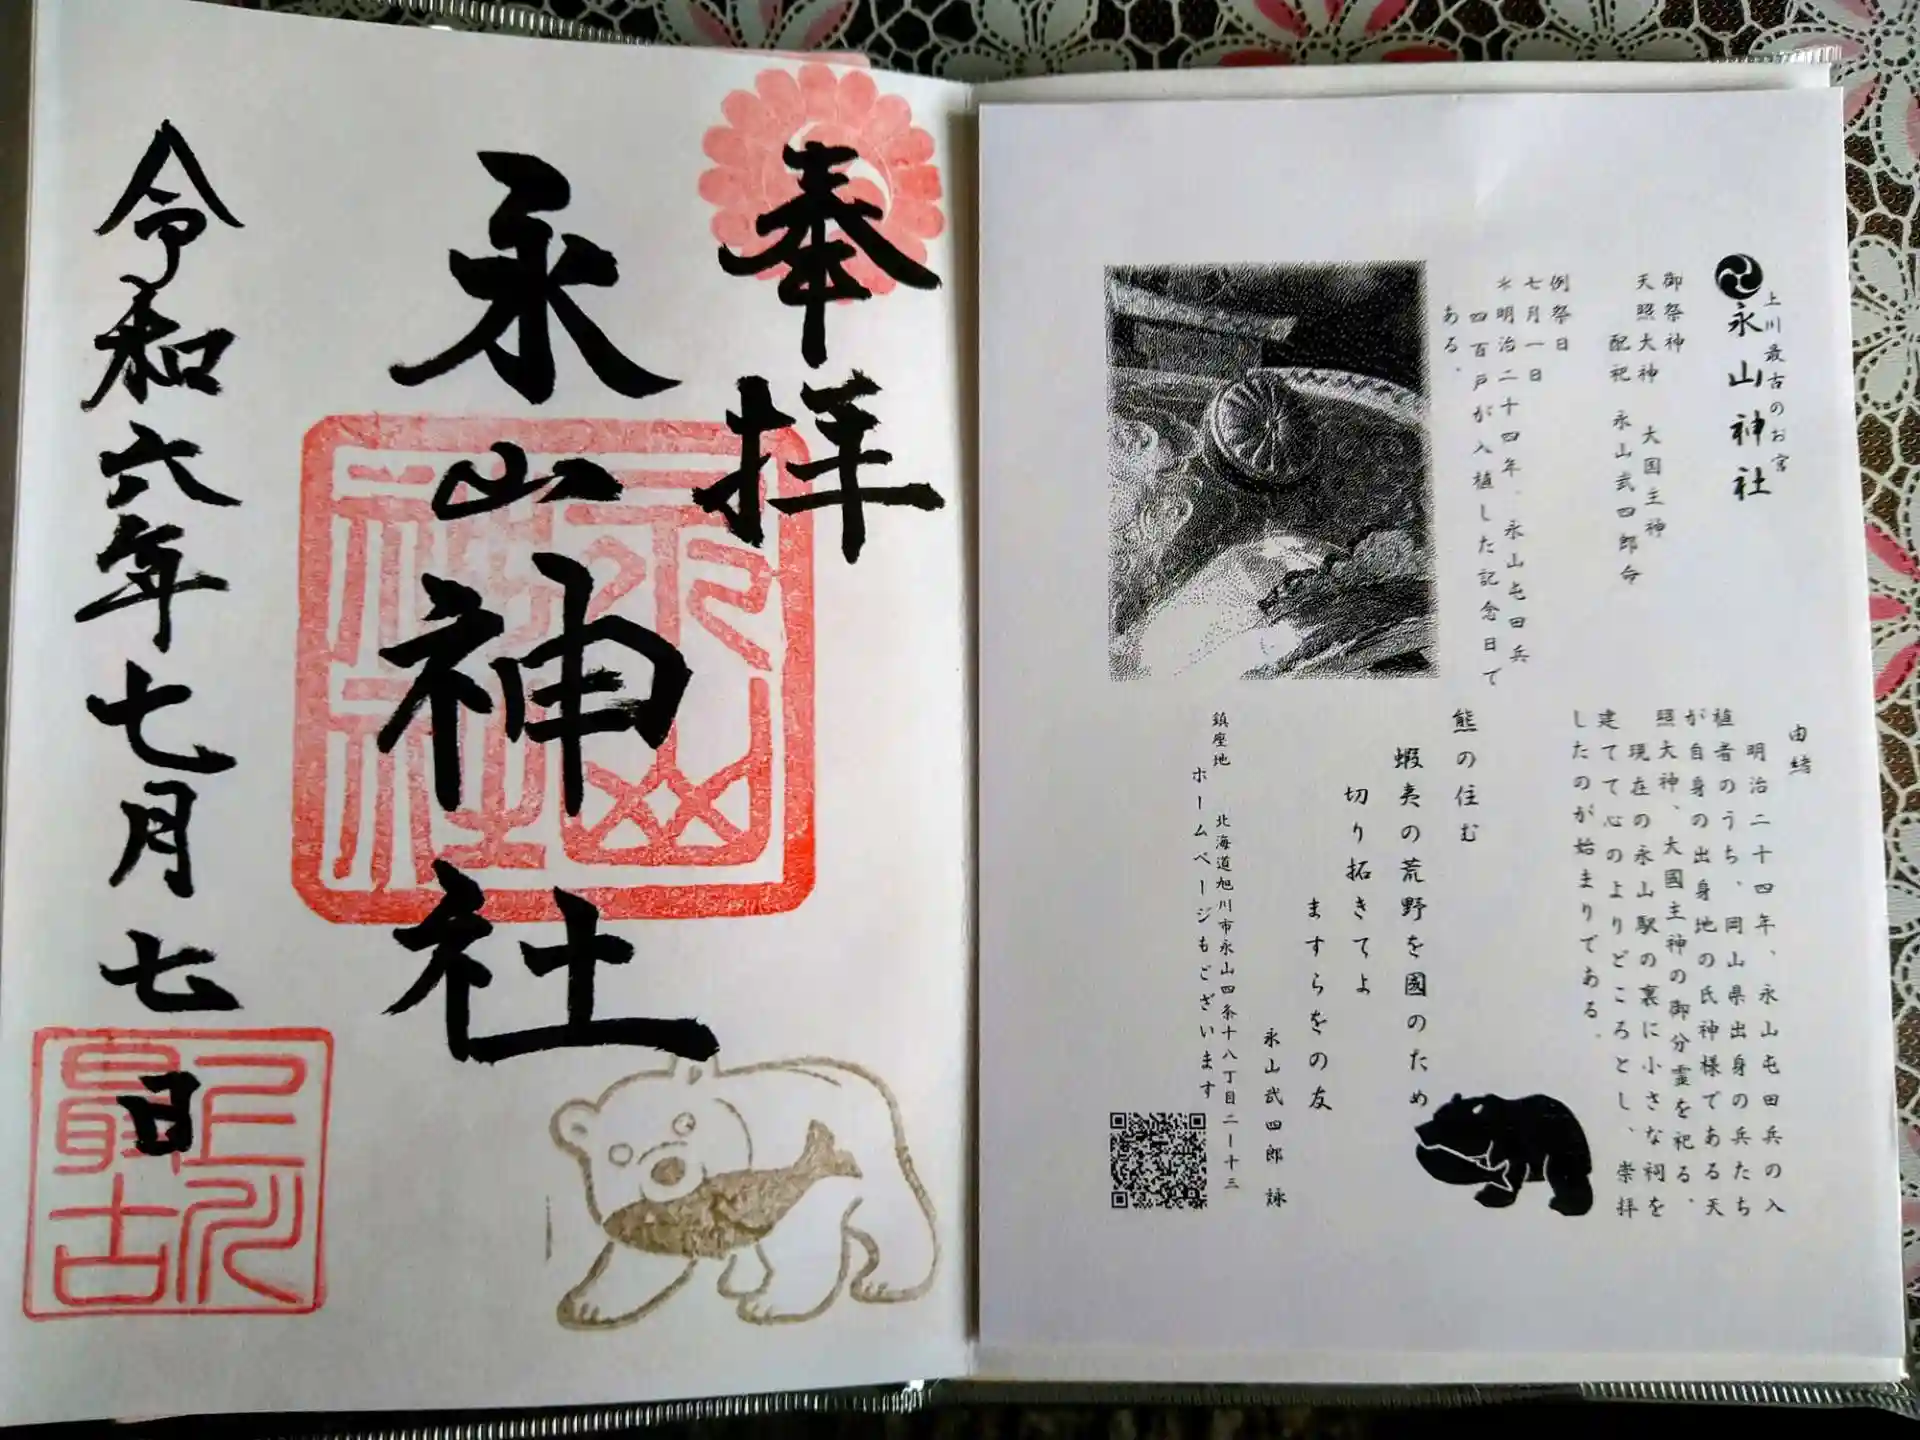 奉拝
永山神社
令和六年七月七日
上川最古
上川最古のお宮
永山神社
御祭神
天照大神 大国主神
配祀 永山武四郎命
例祭日
七月一日
＊明治二十四年、永山屯田兵
四百戸が入植した記念日で
ある。
由緒
明治二十四年、永山屯田兵の入
植者のうち、岡山県出身の兵たち
が自身の出身地の氏神様である天
照大神、大國主神の御分霊を祀る、
現在の永山駅の裏に小さな祠を
建てて心のよりどころとし、崇拝
したのが始まりである。
熊の住む
蝦夷の荒野を國のため
切り拓きてよ
ますらをの友
永山武四郎 詠
鎮座地 北海道旭川市永山四条十八丁目二ー十三
ホームページもございます